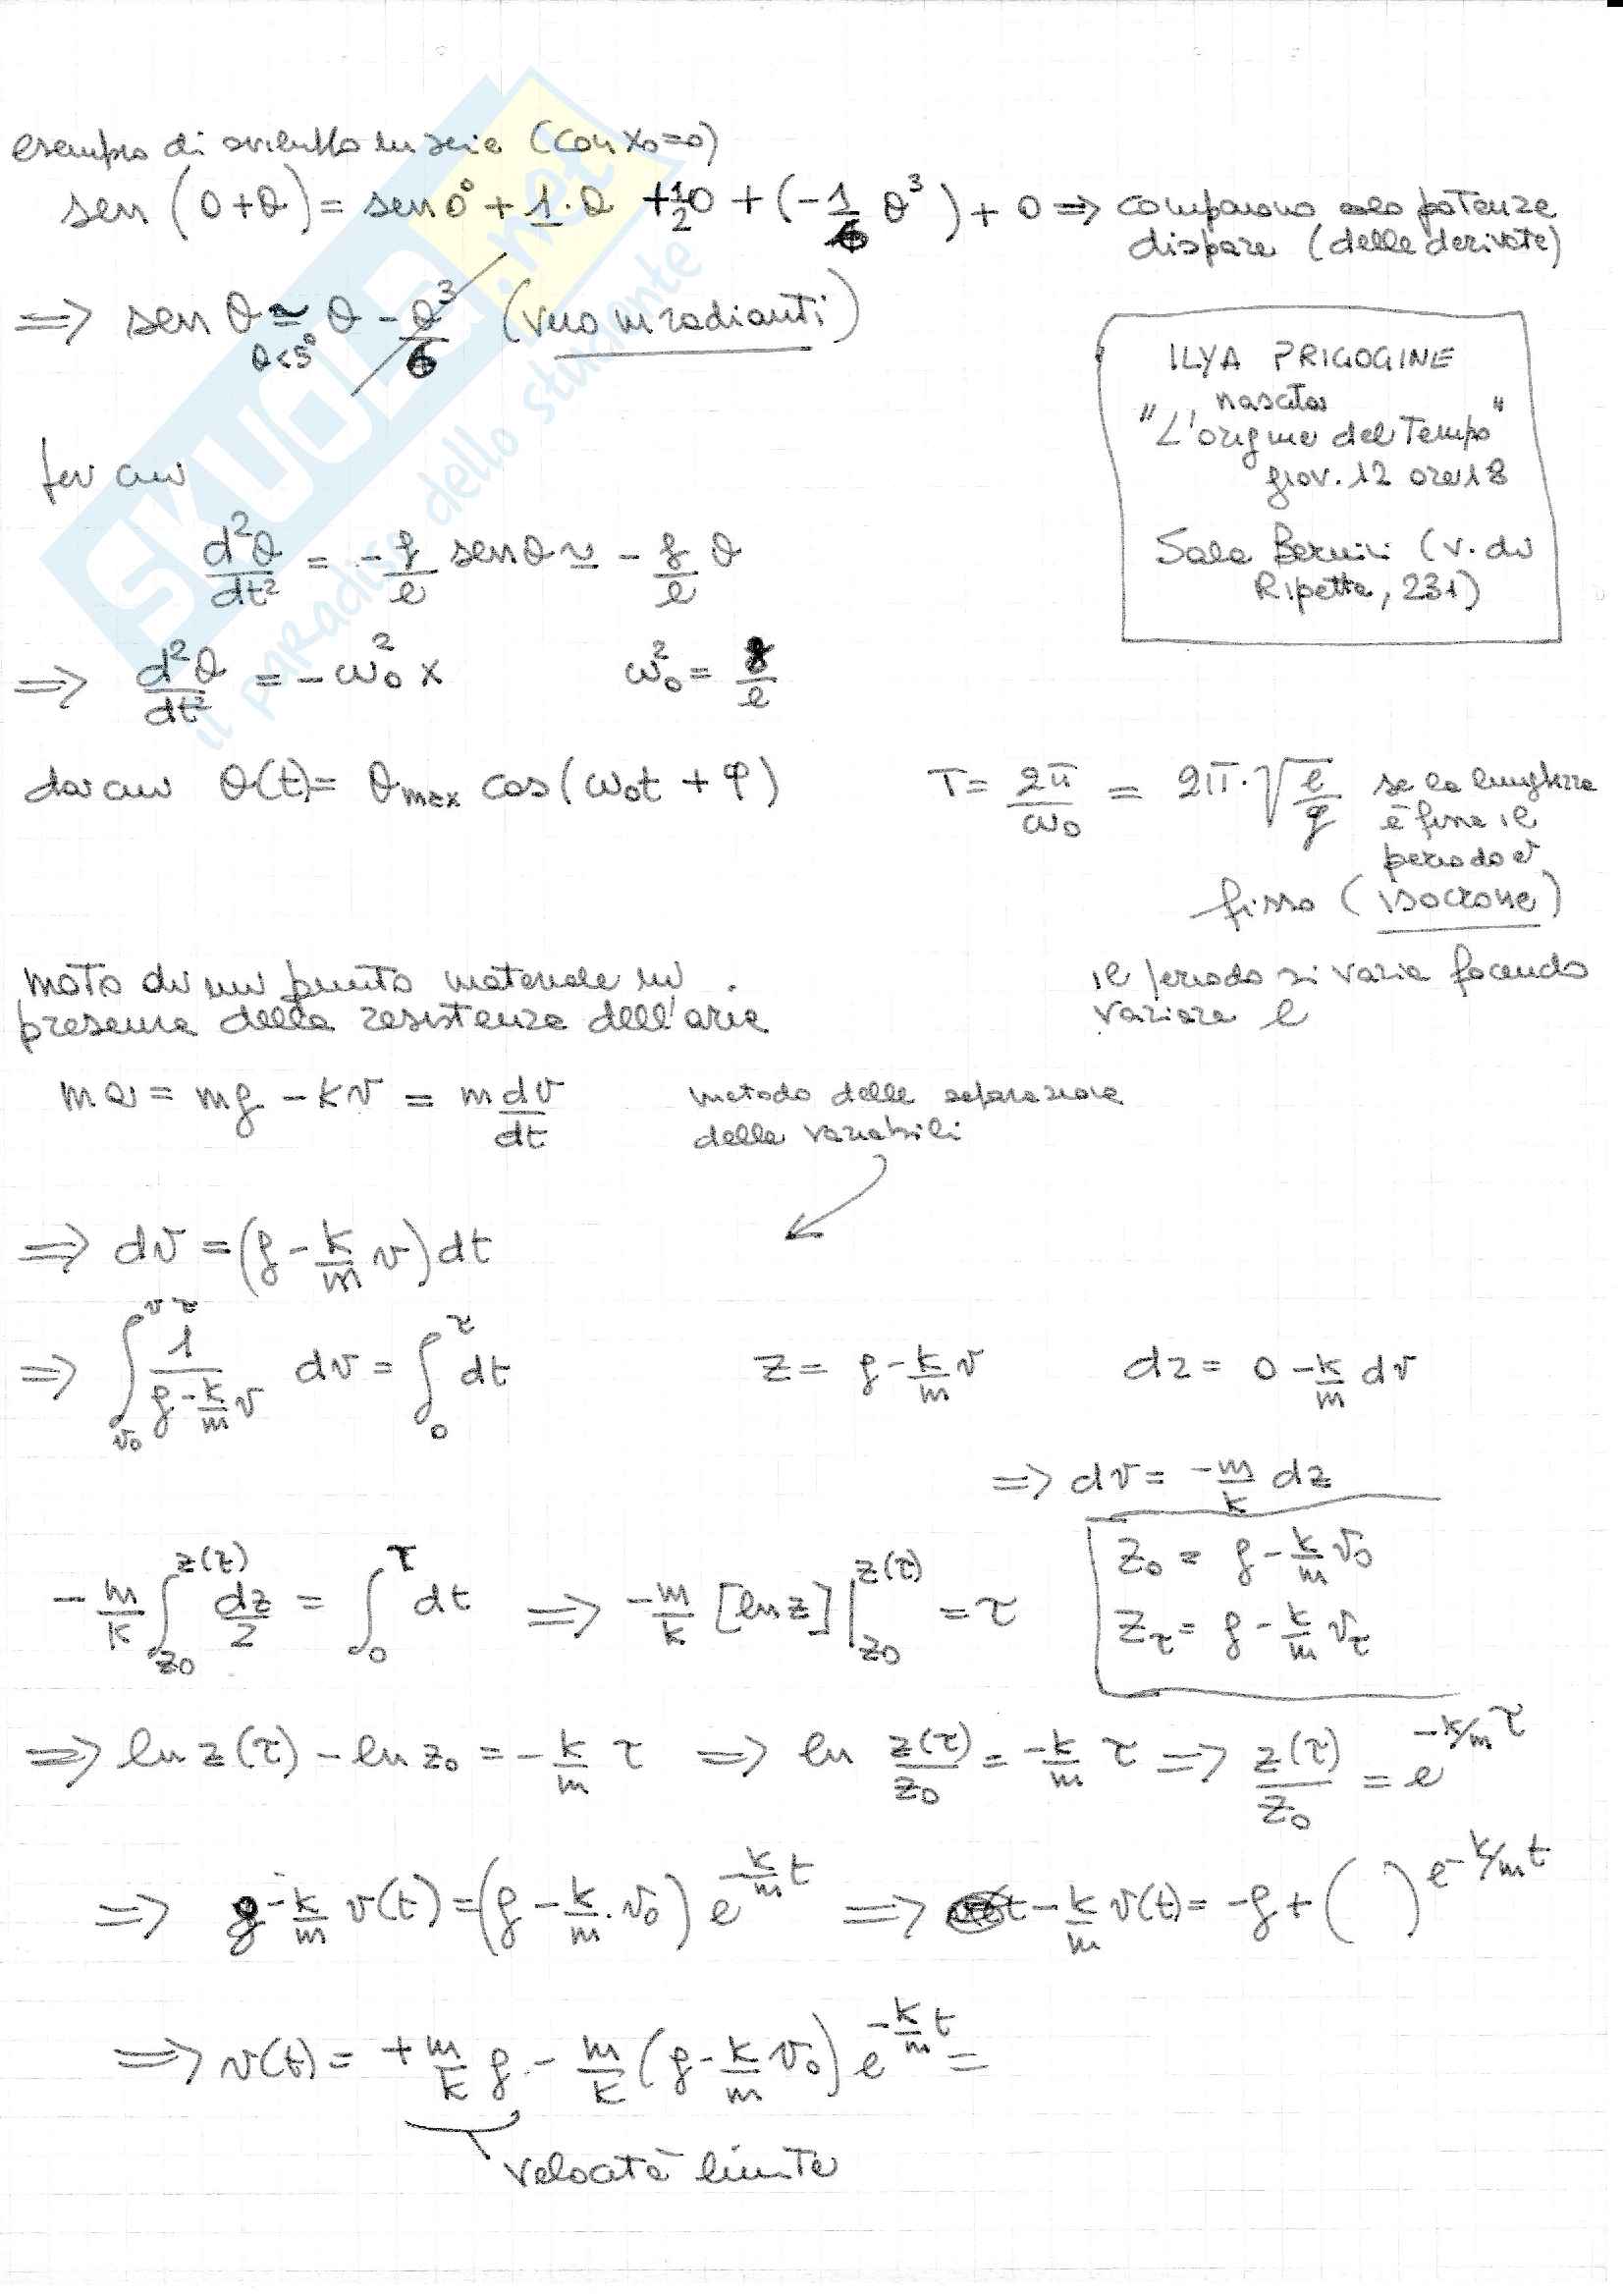 esempio di sviluppo in serie (con x₀=0)
sen (0+θ) = sen 0° + 1·θ + 1/2 0 + (-1/6 θ³) + 0 => compaiono solo potenze
dispare (delle derivate)
=> sen θ ≃ θ - θ³/6 (vero in radianti)
θ<5°
ILYA PRIGOGINE
nascita
"L'origine del Tempo"
giov. 12 ore 18
Sala Bernini (v. di
Ripetta, 231)
per cui
d²θ/dt² = - g/l sen θ ≃ - g/l θ
=> d²θ/dt² = - ω₀² x ω₀² = g/l
da cui θ(t) = θmax cos(ω₀t + φ)
T = 2π/ω₀ = 2π·√(l/g) se la lunghezza
è fissa il
periodo è
fisso (isocrone)
il periodo si varia facendo
variare l
moto di un punto materiale in
presenza della resistenza dell'aria
ma = mg - kv = m dv/dt
metodo della separazione
delle variabili
=> dv = (g - k/m v) dt
=> ∫_{v₀}^{vτ} 1/(g - k/m v) dv = ∫_0^τ dt z = g - k/m v dz = 0 - k/m dv
=> dv = - m/k dz
- m/k ∫_{z₀}^{z(τ)} dz/z = ∫_0^τ dt => - m/k [ln z]|_{z₀}^{z(τ)} = τ
z₀ = g - k/m v₀
zτ = g - k/m vτ
=> ln z(τ) - ln z₀ = - k/m τ => ln z(τ)/z₀ = - k/m τ => z(τ)/z₀ = e^{-k/m τ}
=> g - k/m v(t) = (g - k/m · v₀) e^{-k/m t} => - k/m v(t) = -g + ( ) e^{-k/m t}
=> v(t) = + m/k g - m/k (g - k/m v₀) e^{-k/m t} =
velocità limite
SKUOLA.net
il paradiso dello studente